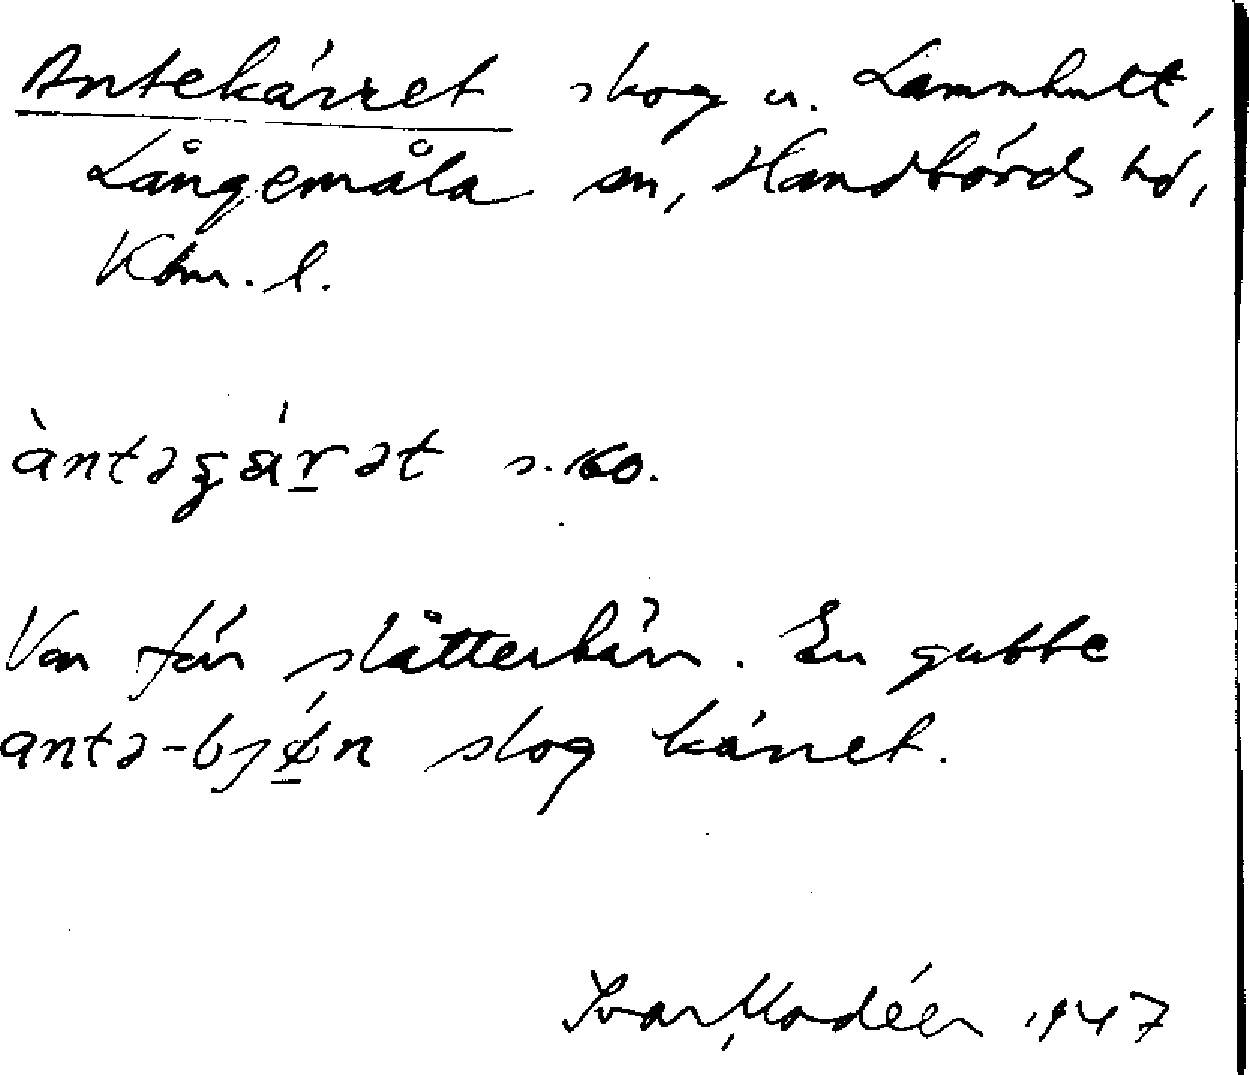 Antekärret skog u. Lamnhult,
Långemåla sn, Handbörds hd,
Klm. l.
àntəgä́r̲ət s. 160.
Var för slåtterkärr. En gubbe
antə-bjǿ̲n slog kärret.
Ivar Modéer 1947